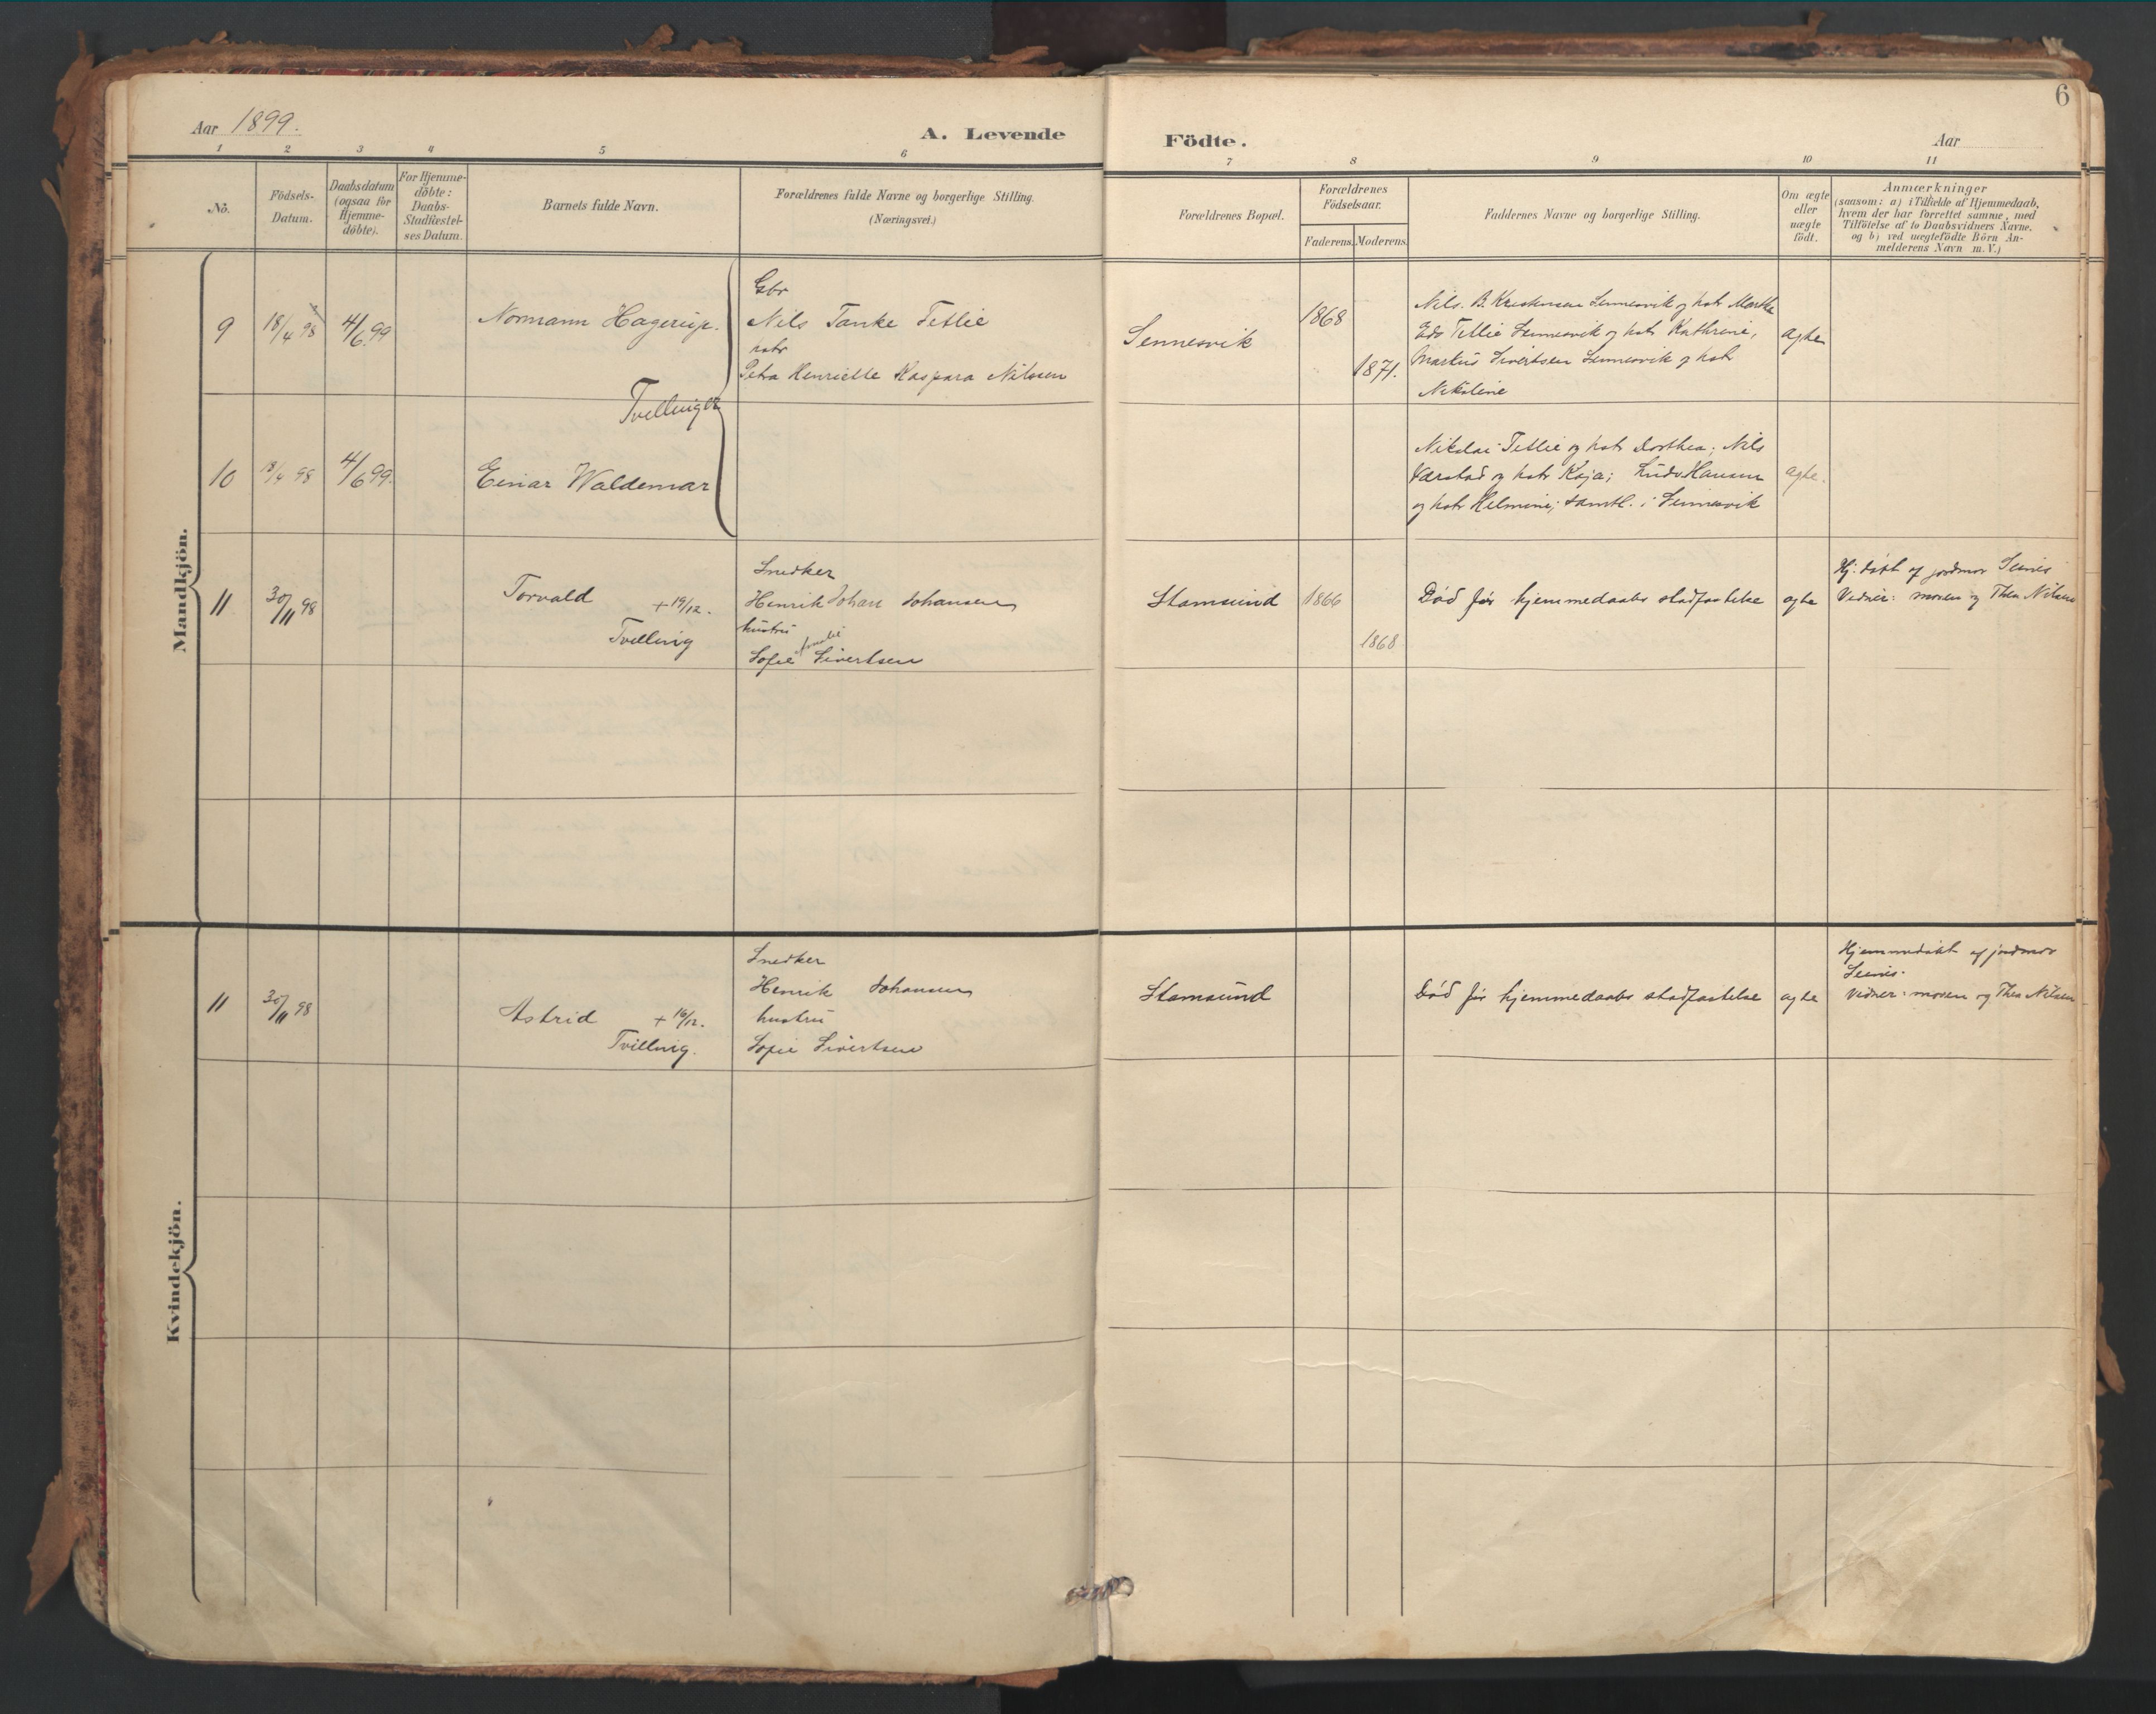 6
Aar 1899.
A. Levende Födte.
Aar
1 2 3 4 5 6 7 8 9 10 11
No.
Födsels-
Datum.
Daabsdatum
(ogsaa for
Hjemme-
döbte).
For Hjemme-
döbte:
Daabs-
Stadfæstel-
ses Datum.
Barnets fulde Navn.
Forældrenes fulde Navne og borgerlige Stilling.
(Næringsvei.)
Forældrenes Bopæl.
Forældrenes
Födselsaar.
Faderens. Moderens.
Faddernes Navne og borgerlige Stilling.
Om ægte
eller
uægte
födt.
Anmærkninger
(saasom: a) i Tilfælde af Hjemmedaab,
hvem der har forrettet samme, med
Tilföielse af to Daabsvidners Navne.
og b) ved uægtefödte Börn An-
melderens Navn m. V.)
Mandkjön.
9
18/4 98
4/6 99
Normann Hagerup.
Tvillinger
Gbr
Nils Tanke Tetlie
hstr
Petra Henriette Kaspara Nilssen
Sennesvik
1868
1871.
Nils. B. Kristensen Sennesvik og hstr Martha
Edv Tetlie Sennesvik og hstr Kathrine,
Markus Sivertsen Sennesvik og hstr
Nikoline
agte
10
18/4 98
4/6 99.
Einar Waldemar
Nikolai Tetlie og hstr Dorthea; Nils
Værstad og hstr Kaja; Ludv Hansen
og hstr Helmine; samtl. i Sennesvik
agte.
11
30/11 98
Torvald +19/12.
Tvilling
Snedker
Henrik Johan Johansen
hustru
Sofie Sivertsen
Stamsund
1866
1868
Död för hjemmedaabs stadfæstelse
agte
Hj. döbt af jordmor
Vidner: moren og Thea Nilsen
Kvindekjön.
11
30/11 98
Astrid +16/12.
Tvilling.
Snedker
Henrik Johansen
hustru
Sofie Sivertsen
Stamsund
Död för hjemmedaabs stadfæstelse
agte
Hjemmedöbt af jordmor
Vidner: moren og Thea Nilsen